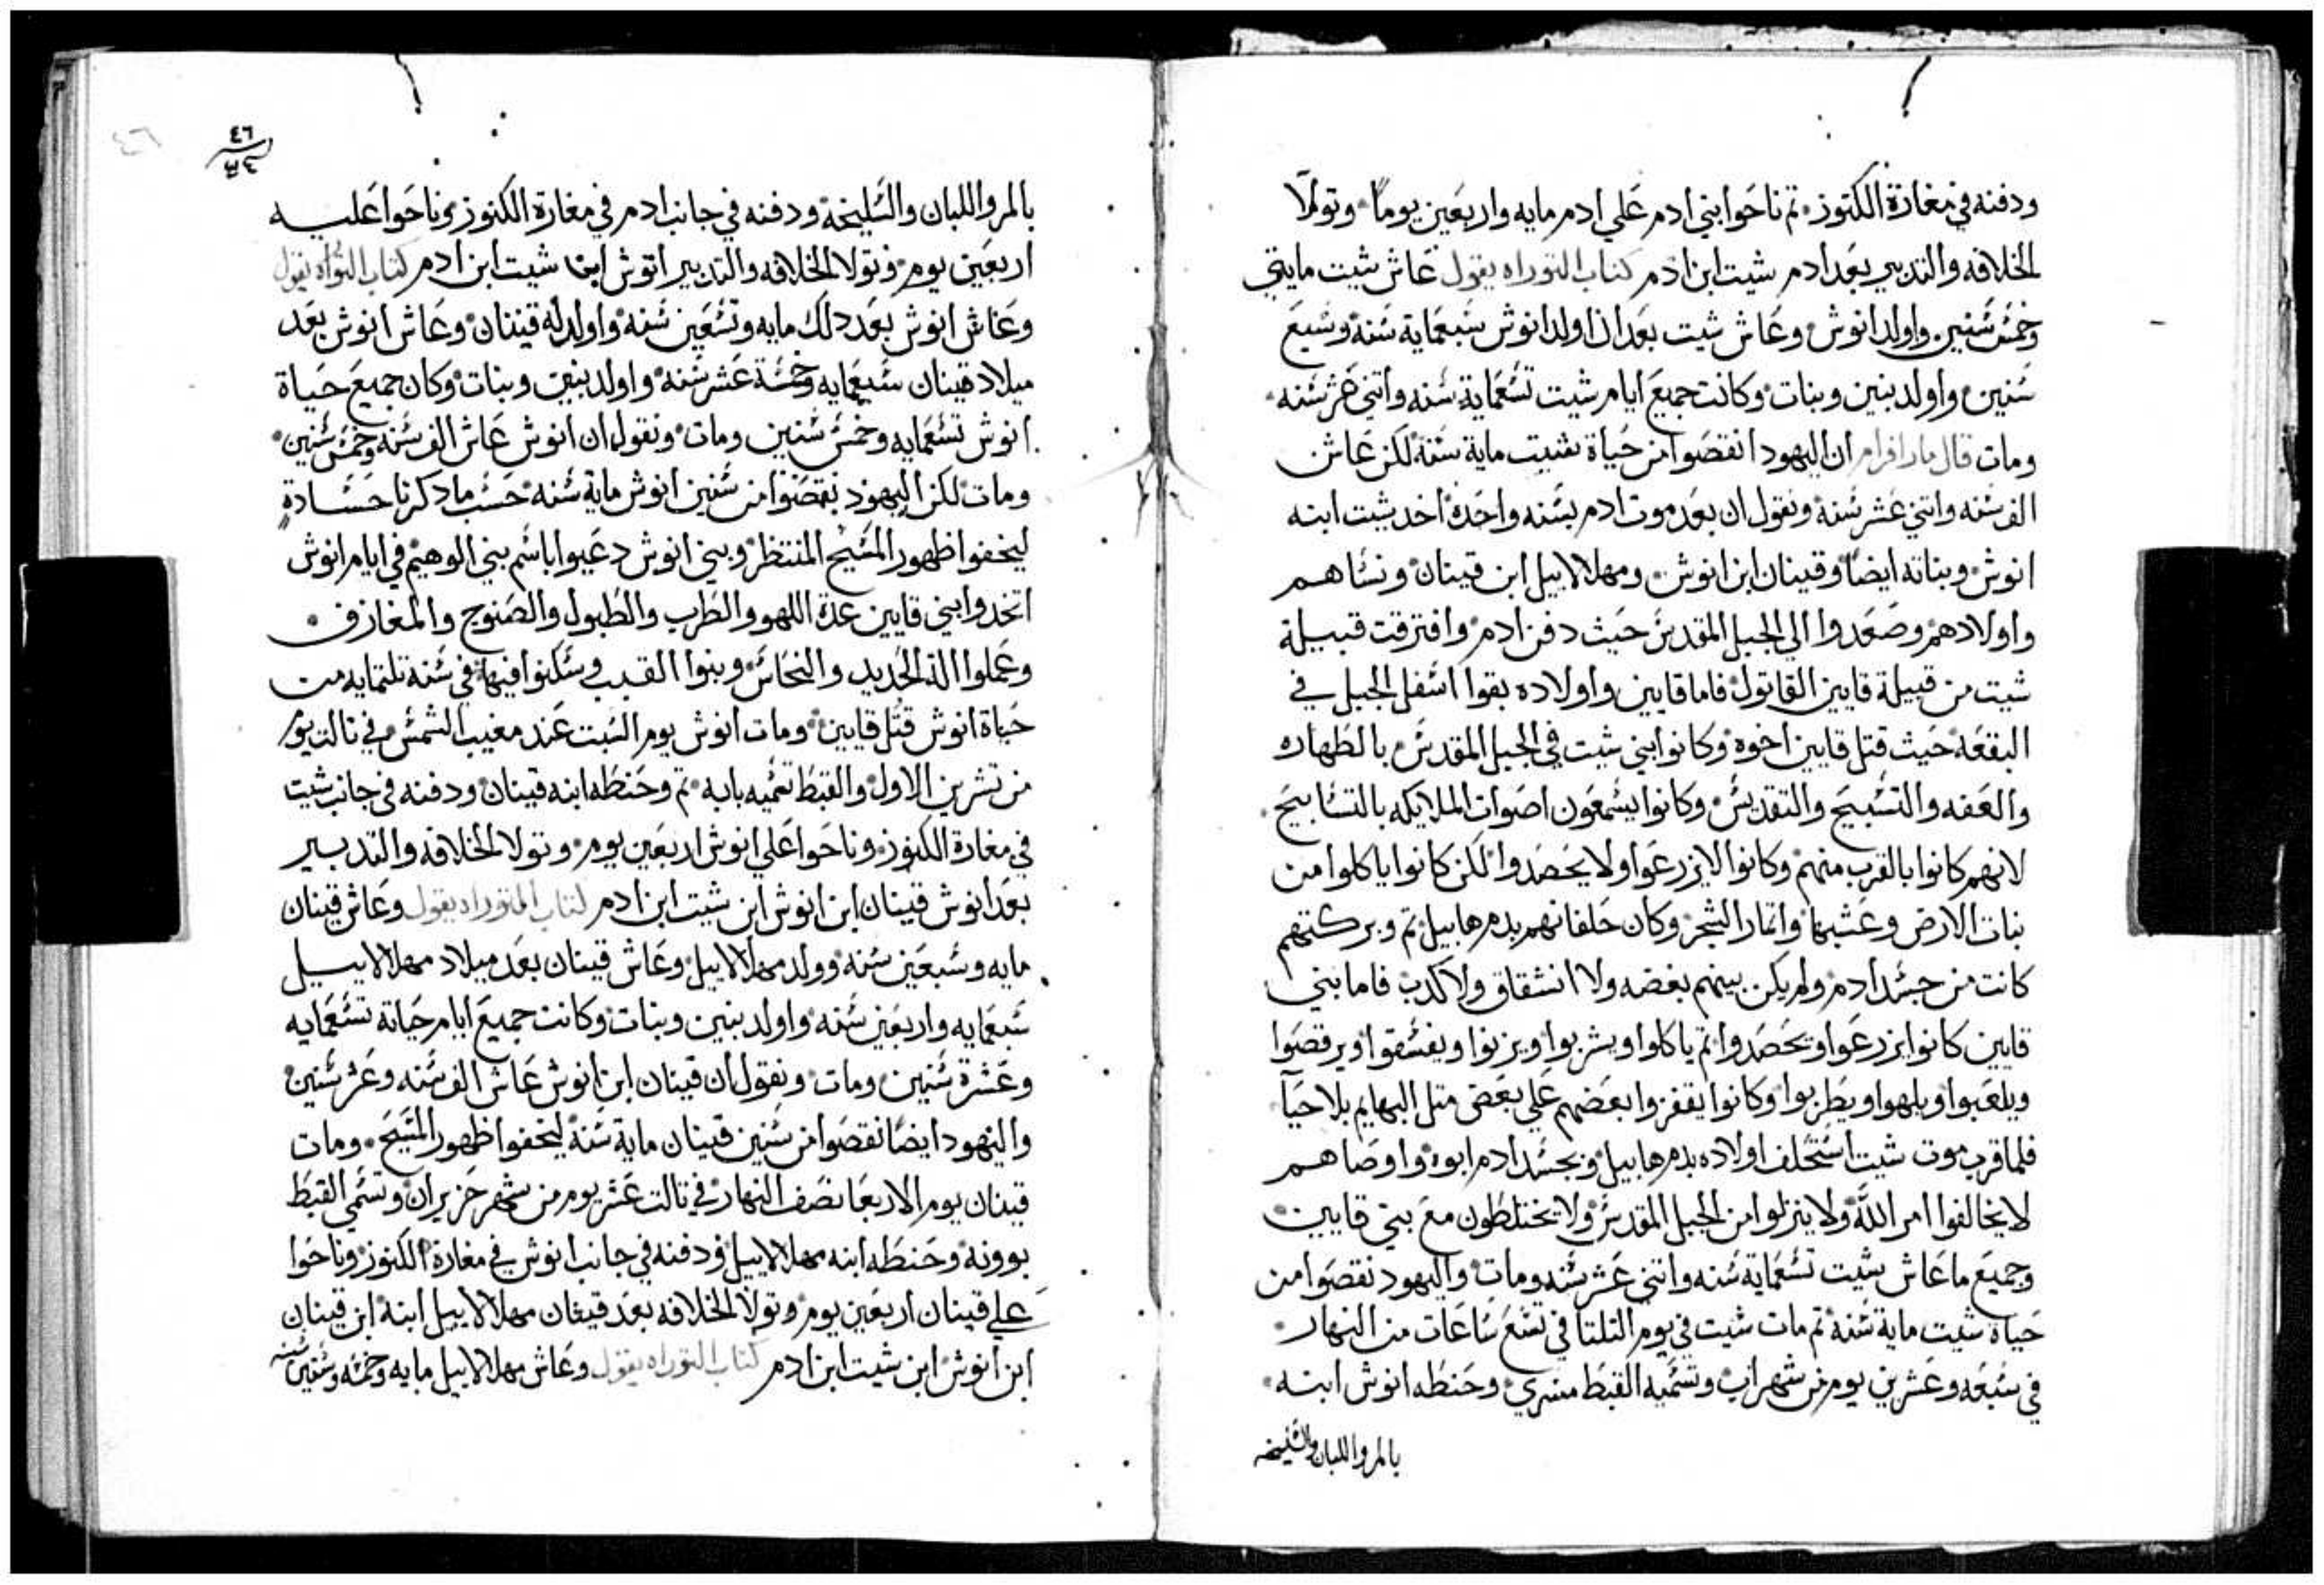 ودفنه في مغارة الكنوز. تم ناحوا بني ادم علي ادم مايه واربعين يوماً وتولا
الخلافه والتدبير بعد ادم شيت ابن ادم كتاب التوراه يقول عاش شيت مايتي
وخمس سنين واولد انوش وعاش شيت بعد ان اولد انوش سبعماية سنة وسبع
سنين واولد بنين وبنات وكانت جميع ايام شيت تسعماية سنه واتني عشر سنه
ومات قال مار افرام ان اليهود انقصوا من حياة شيت ماية سنة لكن عاش
الف سنه واتني عشر سنة ونقول ان بعد موت ادم بسنه واحدة اخد شيت ابنه
انوش وبناته ايضاً وقينان ابن انوش ومهلالاييل ابن قينان ونساهم
واولادهم وصعدوا الي الجبل المقدس حيث دفن ادم وافترقت قبيلة
شيت من قبيلة قايين القاتول فاما قايين واولاده بقوا اسفل الجبل في
البقعة حيث قتل قايين اخوه وكانوا بني شيت في الجبل المقدس بالطهاره
والعفه والتسبيح والتقديس وكانوا يسمعون اصوات الملايكه بالتسابيح
لانهم كانوا بالقرب منهم وكانوا لا يزرعوا ولا يحصدوا لكن كانوا ياكلوا من
نبات الارض وعشبها واتمار الشجر وكان حلفانهم بدم هابيل تم وبركتهم
كانت من جسد ادم ولم يكن بينهم بغضه ولا انشقاق ولا كدب فاما بني
قايين كانوا يزرعوا ويحصدوا تم ياكلوا ويشربوا ويزنوا ويفسقوا ويرقصوا
ويلعبوا ويلهوا ويطربوا وكانوا يقفزوا بعضهم علي بعض متل البهايم بلا حيآ
فلما قرب موت شيت استحلف اولاده بدم هابيل وبجسد ادم ابوه واوصاهم
لا يخالفوا امر الله ولا ينزلوا من الجبل المقدس ولا يختلطون مع بني قايين
وجميع ما عاش شيت تسعماية سنه واتني عشر سنه ومات واليهود نقصوا من
حياة شيت ماية سنة تم مات شيت في يوم التلتا في تسع ساعات من النهار
في سبعه وعشرين يوم من شهر اب وتسميه القبط مسري وحنطه انوش ابنه
بالمر واللبان والسليخه
٤٦
بالمر واللبان والسليخة ودفنه في جانب ادم في مغارة الكنوز وناحوا عليه
اربعين يوم وتولا الخلافه والتدبير انوش ابن شيت ابن ادم كتاب التوراه يقول
وعاش انوش بعد دلك مايه وتسعين سنه واولد له قينان وعاش انوش بعد
ميلاد قينان سبعمايه وخمسة عشر سنه واولد بنين وبنات وكان جميع حياة
انوش تسعمايه وخمس سنين ومات ونقول ان انوش عاش الف سنه وخمس سنين
ومات لكن اليهود نقصوا من سنين انوش ماية سنه حسب ما دكرنا حسادة
ليخفوا ظهور المسيح المنتظر وبني انوش دعيوا باسم بني الوهيم في ايام انوش
اتخدوا بني قايين عدة اللهو والطرب والطبول والصنوج والمعازف
وعملوا الة الحديد والنحاس وبنوا القبب وسكنوا فيها في سنة تلتمايه من
حياة انوش قتل قايين ومات انوش يوم السبت عند مغيب الشمس في تالت يوم
من تشرين الاول والقبط تسميه بابه تم وحنطه ابنه قينان ودفنه في جانب شيت
في مغارة الكنوز وناحوا علي انوش اربعين يوم وتولا الخلافه والتدبير
بعد انوش قينان ابن انوش ابن شيت ابن ادم كتاب التوراه يقول وعاش قينان
مايه وسبعين سنه وولد مهلالاييل وعاش قينان بعد ميلاد مهلالاييل
سبعمايه واربعين سنه واولد بنين وبنات وكانت جميع ايام حياتة تسعمايه
وعشرة سنين ومات ونقول ان قينان ابن انوش عاش الف سنه وعشر سنين
واليهود ايضاً نقصوا من سنين قينان ماية سنة ليخفوا ظهور المسيح ومات
قينان يوم الاربعا نصف النهار في تالت عشر يوم من شهر حزيران وتسمي القبط
بوونه وحنطه ابنه مهلالاييل ودفنه في جانب انوش في مغارة الكنوز وناحوا
علي قينان اربعين يوم وتولا الخلافه بعد قينان مهلالاييل ابنه ابن قينان
ابن انوش ابن شيت ابن ادم كتاب التوراه يقول وعاش مهلالاييل مايه وخمسه وستين سنه